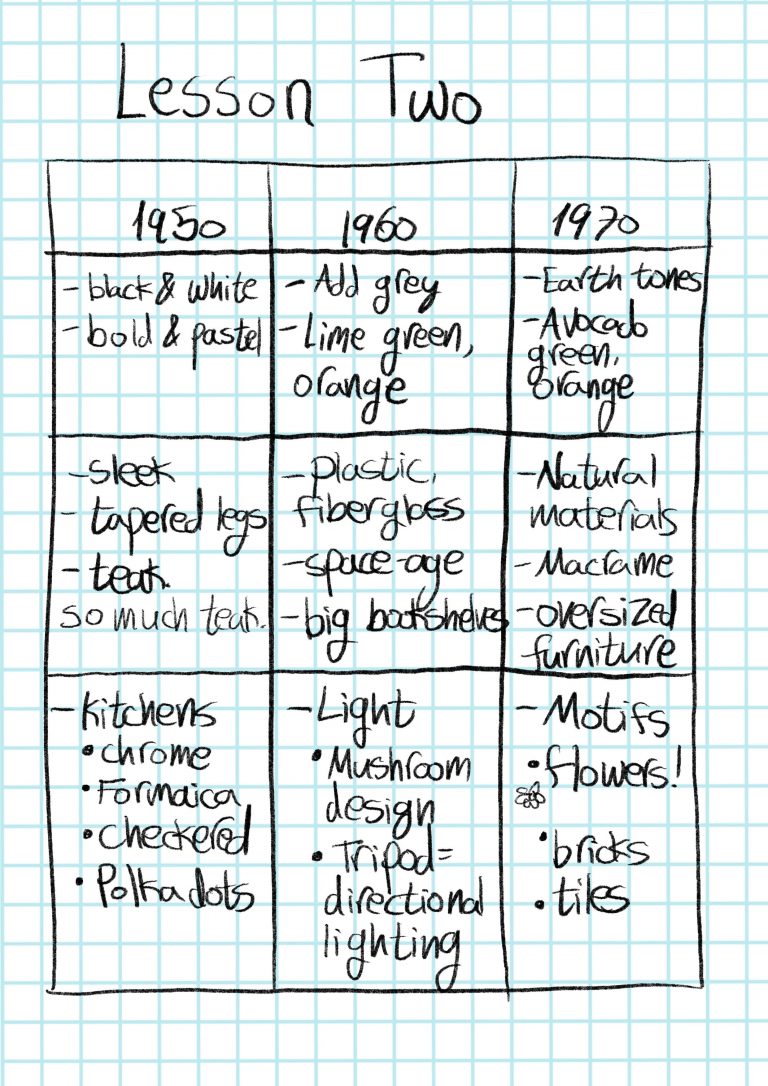 Lesson Two
1950
1960
1970
- black & white
- bold & pastel
- Add grey
- Lime green,
orange
- Earth tones
- Avocado
green,
orange
- sleek
- tapered legs
- teak.
so much teak.
- plastic,
fibergloss
- space-age
- big bookshelves
- Natural
materials
- Macrame
- oversized
furniture
- kitchens
• chrome
• Formaica
• checkered
• Polka dots
- Light
• Mushroom
design
• Tripod=
directional
lighting
- Motifs
• flowers!
• bricks
• tiles